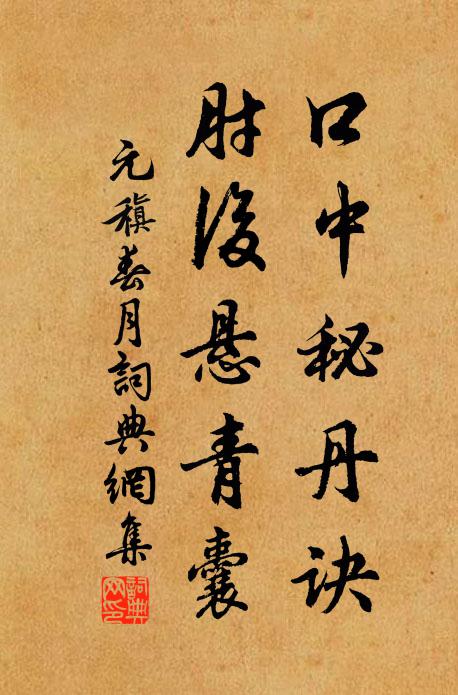 口中秘丹訣
肘後悬青囊
元稹春月詞典網集
詞典网印